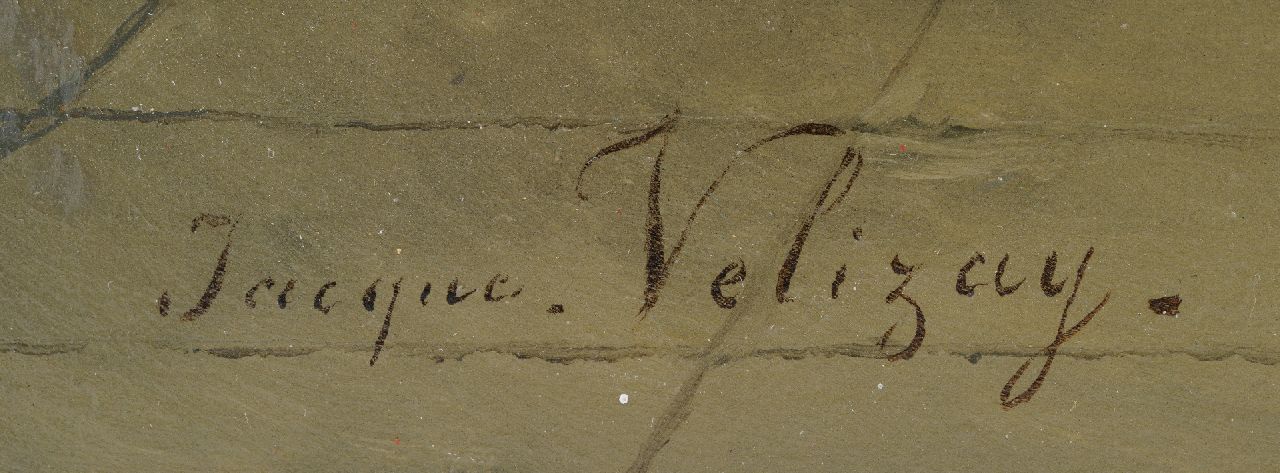 Jacque. Velizay.